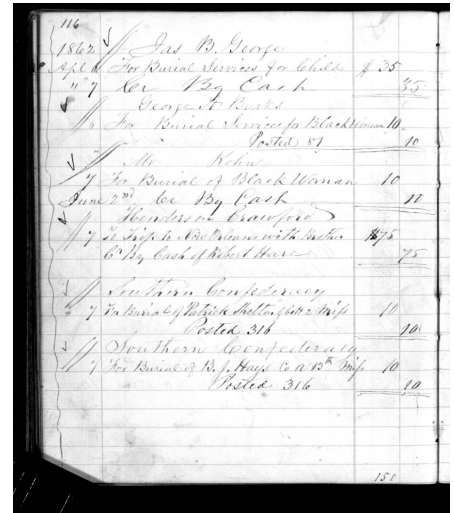 116
1862 Jas B. George
Apl 6 For Burial Services for Child $35
" 7 Cr By Cash 35
George A
" 6 For Burial Services for Black Woman 10
Posted 81 10
Mr Kohn
" 7 For Burial of Black Woman 10
June 2nd Cr By Cash 10
Henderson Crawford
" 7 To Trip to New Orleans with $75
Cr By Cash of Robert Hare 75
Southern Confederacy
" 7 For Burial of Patrick Miss 10
Posted 316 10
Southern Confederacy
" 7 For Burial of B. J. Hays Co A 13th Miss 10
Posted 316 10
150